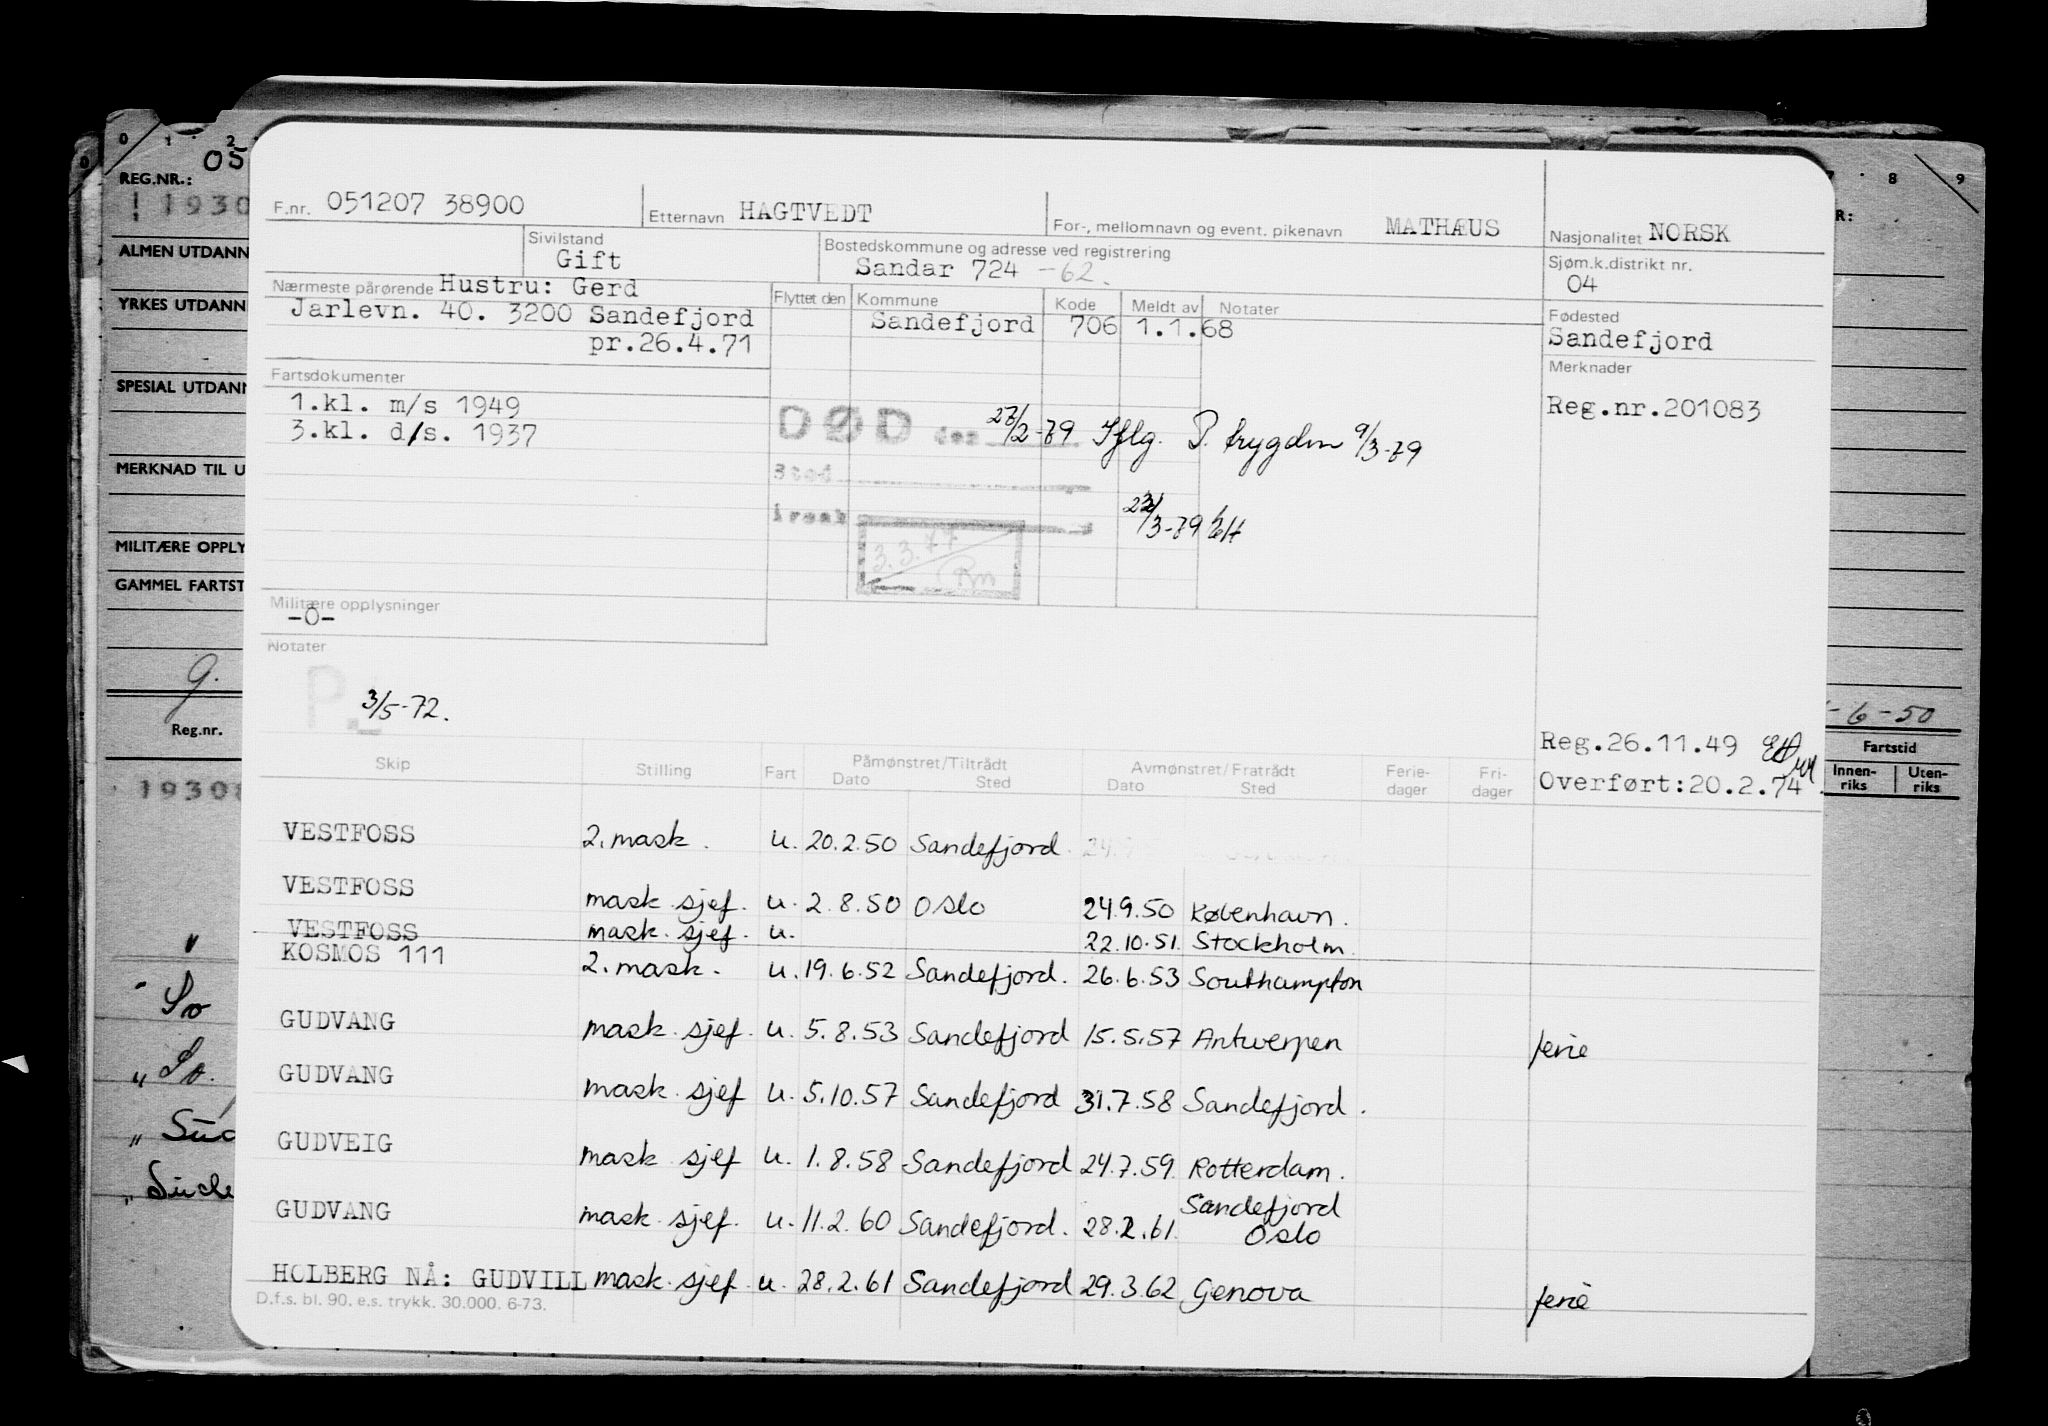 0 1 2 8 9
0
05
REG.NR.:
1930
ALMEN UTDANN
YRKES UTDANN
SPESIAL UTDANN
MERKNAD TIL U
MILITÆRE OPPLY
GAMMEL FARTST
Reg.nr.
1930
R:
-6-50
Fartstid
Innen-riks Uten-riks
F.nr. 051207 38900 Etternavn HAGTVEDT For-, mellomnavn og event. pikenavn MATHÆUS Nasjonalitet NORSK
Sivilstand Gift Bostedskommune og adresse ved registrering Sandar 724 -62. Sjøm.k.distrikt nr. 04
Nærmeste pårørende Hustru: Gerd
Jarlevn. 40. 3200 Sandefjord
pr.26.4.71
Flyttet den Kommune Kode Meldt av Notater
Sandefjord 706 1.1.68
Fødested
Sandefjord
Merknader
Reg.nr.201083
Fartsdokumenter
1.kl. m/s 1949
3.kl. d/s. 1937
DØD den 27/2-79 Iflg. P. trygden 9/3-79
Sted
årsak
22/3-79
3.3.77
Rm
Militære opplysninger
-0-
Notater
P. 3/5-72.
Reg.26.11.49
Overført:20.2.74
Skip Stilling Fart Påmønstret/Tiltrådt Avmønstret/Fratrådt Ferie-dager Fri-dager
Dato Sted Dato Sted
VESTFOSS 2. mask. u. 20.2.50 Sandefjord.
VESTFOSS mask. sjef. u. 2.8.50 Oslo 24.9.50 København.
VESTFOSS mask. sjef. u. 22.10.51. Stockholm.
KOSMOS 111 2. mask. u. 19.6.52 Sandefjord. 26.6.53 Southampton
GUDVANG mask. sjef. u. 5.8.53 Sandefjord 15.5.57 Antwerpen ferie
GUDVANG mask. sjef u. 5.10.57 Sandefjord 31.7.58 Sandefjord.
GUDVEIG mask. sjef u. 1.8.58 Sandefjord 24.7.59 Rotterdam.
GUDVANG mask. sjef. u. 11.2.60 Sandefjord. 28.2.61. Sandefjord Oslo
HOLBERG NÅ: GUDVILL mask. sjef. u. 28.2.61 Sandefjord 29.3.62 Genova ferie
D.f.s. bl. 90. e.s. trykk. 30.000. 6-73.